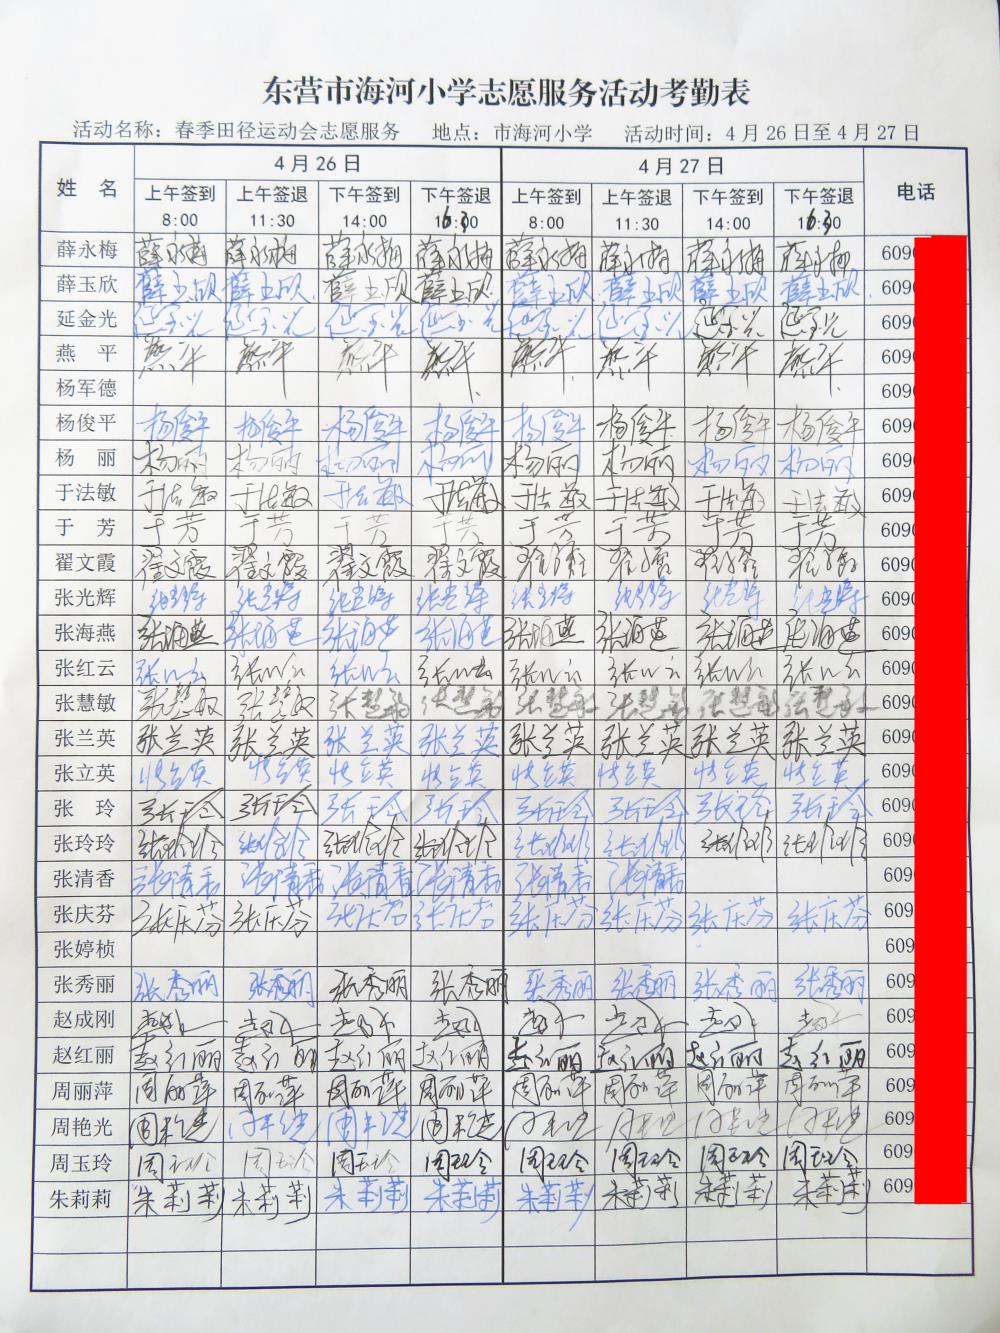 东营市海河小学志愿服务活动考勤表
活动名称：春季田径运动会志愿服务 地点：市海河小学 活动时间：4月26日至4月27日
姓 名 4月26日 4月27日 电话
上午签到 上午签退 下午签到 下午签退 上午签到 上午签退 下午签到 下午签退
8:00 11:30 14:00 8:00 11:30 14:00
薛永梅 薛永梅 薛永梅 薛永梅 薛永梅 薛永梅 薛永梅 薛永梅 薛永梅 609
薛玉欣 薛玉欣 薛玉欣 薛玉欣 薛玉欣 薛玉欣 薛玉欣 薛玉欣 薛玉欣 609
延金光 延金光 延金光 延金光 延金光 延金光 延金光 延金光 延金光 609
燕 平 燕平 燕平 燕平 燕平 燕平 燕平 燕平 燕平 609
杨军德 609
杨俊平 杨俊平 杨俊平 杨俊平 杨俊平 杨俊平 杨俊平 杨俊平 杨俊平 609
杨 丽 杨丽 杨丽 杨丽 杨丽 杨丽 杨丽 杨丽 杨丽 609
于法敏 于法敏 于法敏 于法敏 于法敏 于法敏 于法敏 于法敏 于法敏 609
于 芳 于芳 于芳 于芳 于芳 于芳 于芳 于芳 于芳 6090
翟文霞 翟文霞 翟文霞 翟文霞 翟文霞 609
张光辉 609
张海燕 张海燕 张海燕 张海燕 张海燕 张海燕 张海燕 张海燕 张海燕 6090
张红云 张红云 张红云 张红云 张红云 张红云 张红云 张红云 张红云 6090
张慧敏 张慧敏 张慧敏 张慧敏 张慧敏 张慧敏 张慧敏 张慧敏 张慧敏 6090
张兰英 张兰英 张兰英 张兰英 张兰英 张兰英 张兰英 张兰英 张兰英 6090
张立英 张立英 张立英 张立英 张立英 张立英 张立英 张立英 张立英 609
张 玲 张玲 张玲 张玲 张玲 张玲 张玲 张玲 张玲 609
张玲玲 张玲玲 张玲玲 张玲玲 张玲玲 张玲玲 张玲玲 张玲玲 张玲玲 609
张清香 张清香 张清香 张清香 张清香 张清香 张清香 609
张庆芬 张庆芬 张庆芬 张庆芬 张庆芬 张庆芬 张庆芬 张庆芬 张庆芬 609
张婷桢 609
张秀丽 张秀丽 张秀丽 张秀丽 张秀丽 张秀丽 张秀丽 张秀丽 张秀丽 609
赵成刚 609
赵红丽 赵红丽 赵红丽 赵红丽 赵红丽 赵红丽 赵红丽 赵红丽 赵红丽 609
周丽萍 周丽萍 周丽萍 周丽萍 周丽萍 周丽萍 周丽萍 周丽萍 周丽萍 609
周艳光 609
周玉玲 周玉玲 周玉玲 周玉玲 周玉玲 周玉玲 周玉玲 周玉玲 周玉玲 609
朱莉莉 朱莉莉 朱莉莉 朱莉莉 朱莉莉 朱莉莉 朱莉莉 朱莉莉 朱莉莉 609